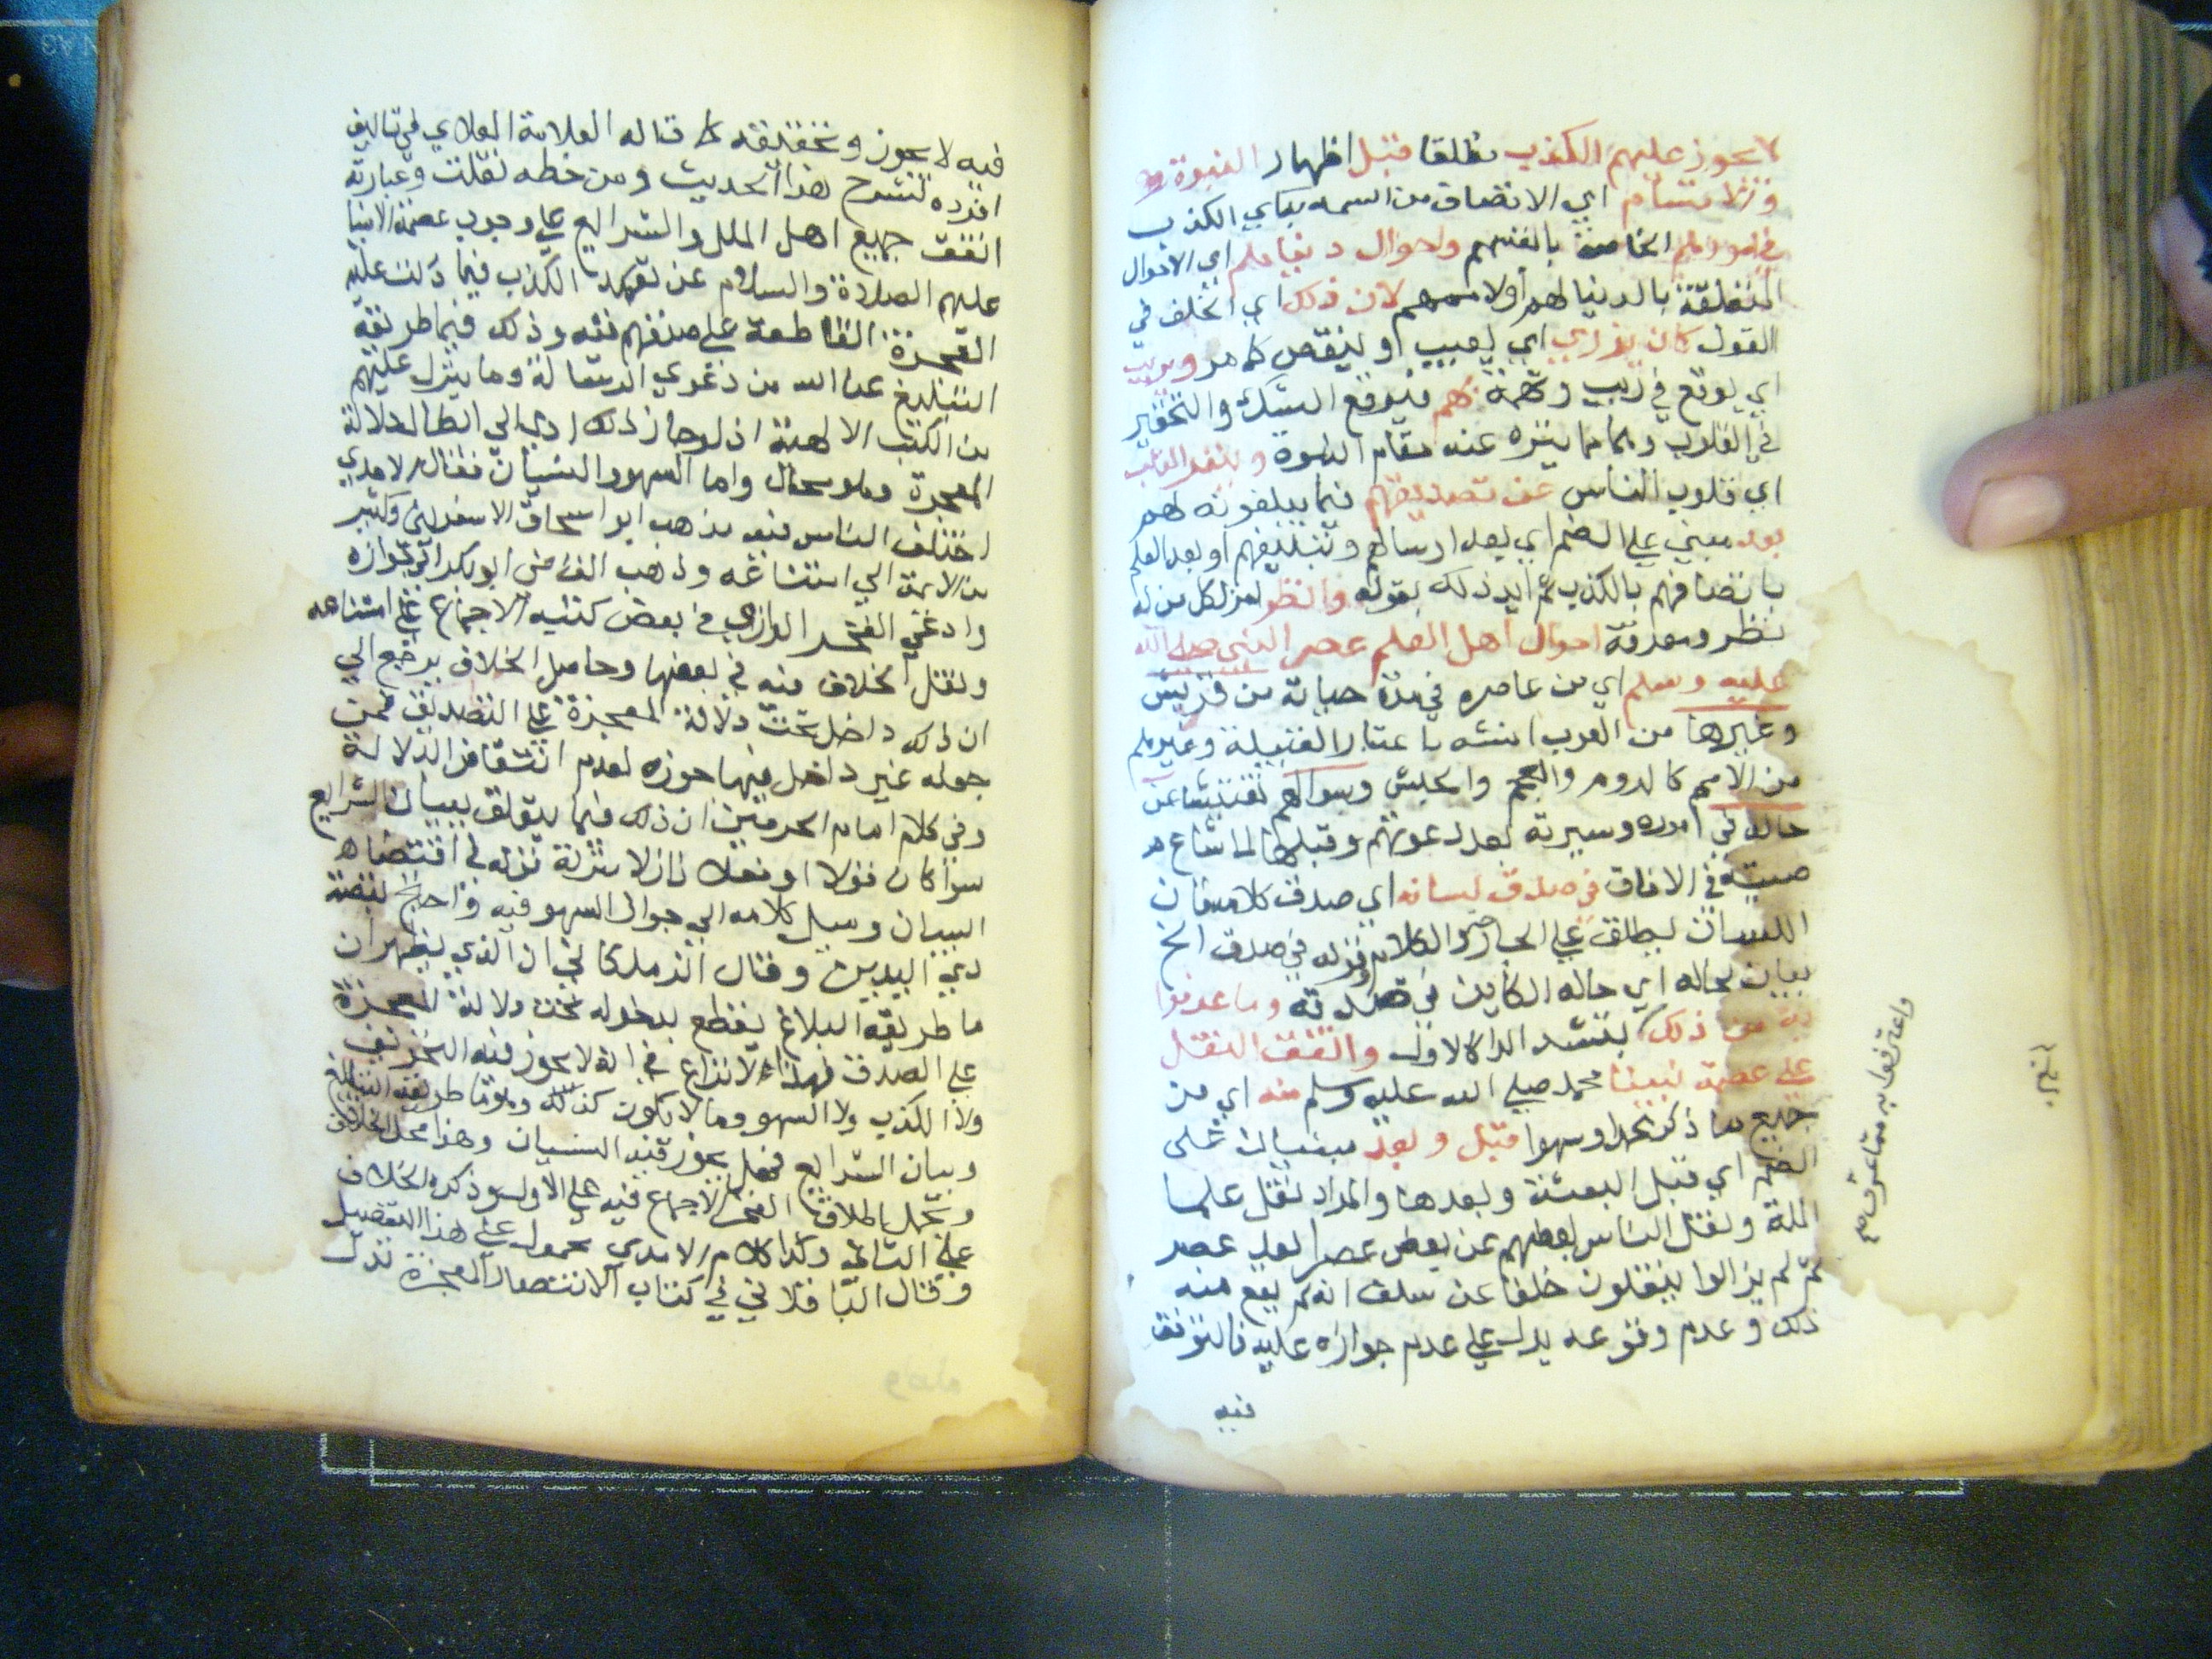 لا يجوز عليهم الكذب مطلقا قبل اظهار النبوة
ولا تسام اي الاتصاف من السمه بباي الكذب
في امورهم الخاصة بانفسهم واحوال دنياهم اي الاحوال
المتعلقة بالدنيا لهم أولا لان ذلك اي الخلف في
القول كان يزري اي يعيب او ينقص كما مر ويريب
اي يوقع في ريب وتهمة بهم فيوقع الشك والتحقير
في القلوب وهما مما ينزه عنه مقام النبوة وينفر القلب
اي قلوب الناس عن تصديقهم فيما يبلغونه لهم
بعد مبني على الضم اي بعد ارسالهم وتبليغهم او بعد العلم
باتصافهم بالكذب ثم ايد ذلك بقوله وانظر لكل من له
نظر ومعرفة احوال اهل العلم عصر النبي صلى الله
عليه وسلم اي من عاصره في مدة حياته من قريش
وغيرها من العرب انثه باعتبار القبيلة وغيرهم
من الامم كالروم والعجم والحبش وسوالهم تفتيشا عن
حاله في اموره وسيرته بعد دعوتهم وقبلها لما شاع
صيته في الافاق في صدق لسانه اي صدق كلامه فان
اللسان يطلق على الجارحة والكلام وقوله في صدق الخ
بيان لحاله اي حاله الكاين في صدقه وما عرفوا
به من ذلك بتشديد الراء الاول واتفق النقل
على عصمة نبينا محمد صلى الله عليه وسلم منه اي من
جميع ما ذكر عمدا وسهوا قبل وبعد مبنيان على
الضم اي قبل البعثة وبعدها والمراد نقل علما
الملة ونقل الناس بعضهم عن بعض عصرا بعد عصر
ثم لم يزالوا ينقلون خلفا عن سلف انه لم يقع منه
ذلك وعدم وقوعه يدل على عدم جوازه عليه فالتوقف
فيه
واعترفوا به مما عرف
فيه لا يجوز وتحقيقه كما قاله العلامة العلاي في تاليف
افرده لشرح هذا الحديث ومن خطه نقلت وعبارته
اتفق جميع اهل الملل والشرايع على وجوب عصمة الانبيا
عليهم الصلاة والسلام عن تعمد الكذب فيما دلت عليه
المعجزة القاطعة على صدقهم فيه وذلك فيما طريقه
التبليغ عن الله من دعوي الرسالة وما ينزل عليهم
من الكتب الالهية اذ لو جاز ذلك ادي الى ابطال دلالة
المعجزة وهو محال واما السهو والنسيان فقال الامدي
اختلف الناس فيه فذهب ابو اسحاق الاسفرايني وكثير
من الايمة الي امتناعه وذهب القاضي ابو بكر الى جوازه
وادعي الفخر الرازي في بعض كتبه الاجماع على امتناعه
ونقل الخلاف فيه في بعضها وحاصل الخلاف يرجع الي
ان ذلك داخل تحت دلالة المعجزة على التصديق فمن
جعله غير داخل فيها جوزه لعدم انتقاض الدلالة
وفي كلام امام الحرمين ان ذلك فيما يتعلق ببيان الشرايع
سوا كان قولا او فعلا نازلا منزلة قوله في اقتضاه
البيان وميل كلامه الي جواز السهو فيه واحتج بقصة
ذي اليدين وقال الزملكاني ان الذي يظهر ان
ما طريقه البلاغ يقطع بدخوله تحت دلالة المعجزة
على الصدق فهذا لا نزاع في انه لا يجوز فيه التحريف
ولا الكذب ولا السهو وما لا يكون كذلك وهو ما طريقه التبليغ
وبيان الشرايع فهل يجوز فيه النسيان وهذا محل الخلاف
ويحمل اطلاق الفخر الاجماع فيه على الاول وذكره الخلاف
على الثاني وكذا كلام الامدي محمول على هذا التفصيل
وقال الباقلاني في كتاب الانتصار المعجزة تدل